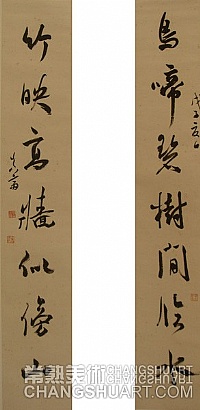 鳥啼碧樹閒臨水
戊子夏日
竹映高牆似傍山
常熟美術 CHANGSHUART
CHANGSHUART.COM